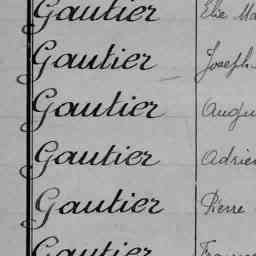 Gautier Elie
Gautier Joseph
Gautier
Gautier Adrien
Gautier Pierre
Gautier